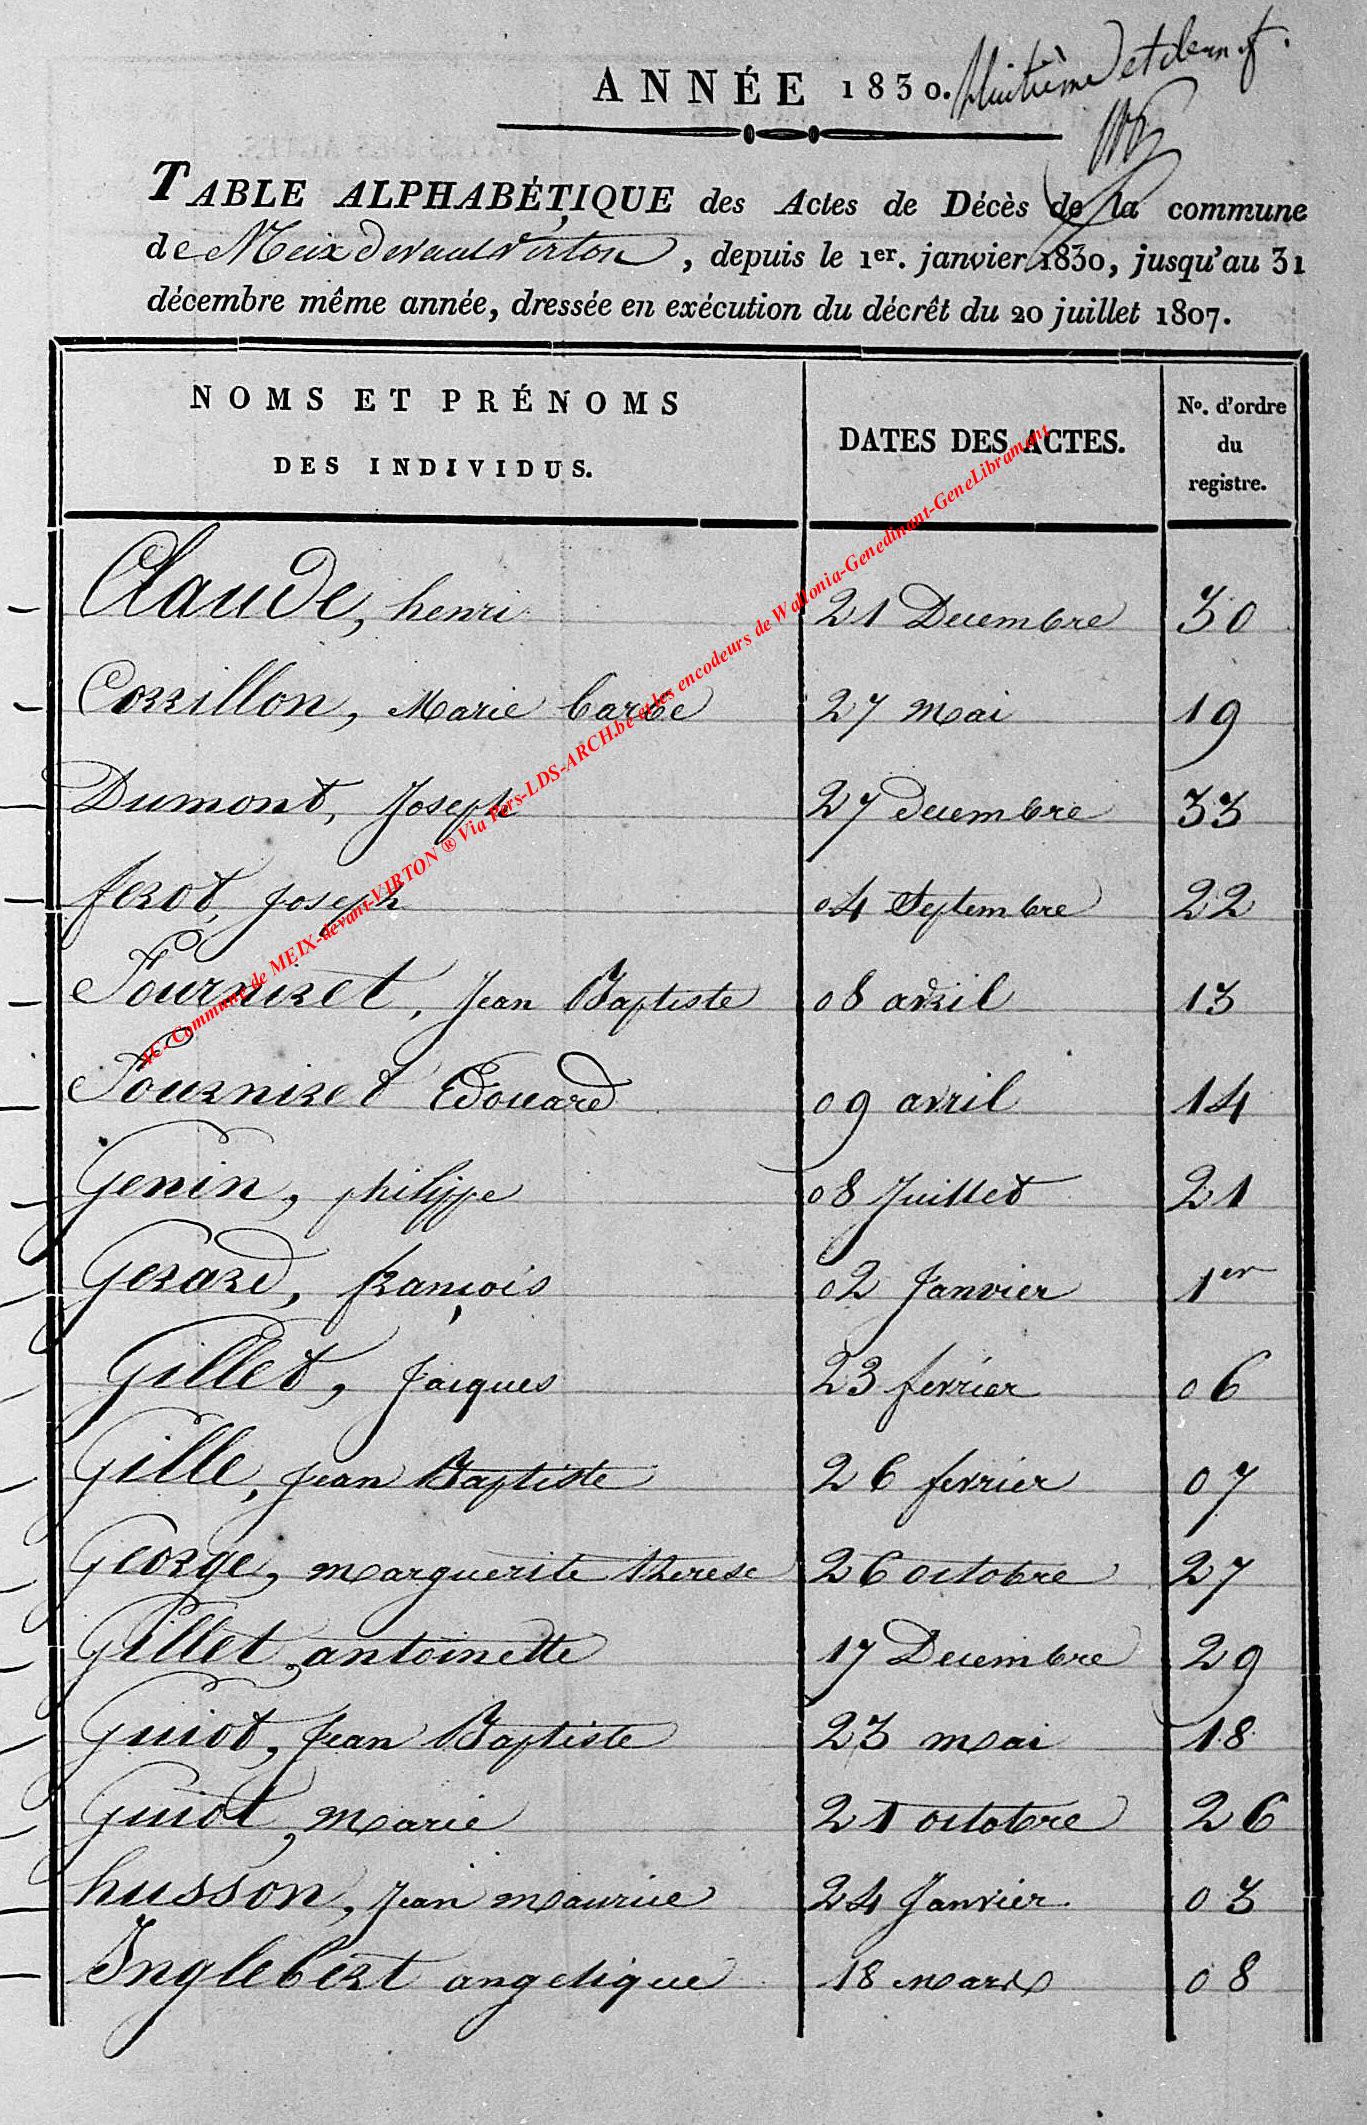 ANNÉE 1830. Huitième et dern f.
TABLE ALPHABÉTIQUE des Actes de Décès de la commune
de Meix devant Virton, depuis le 1er. janvier 1830, jusqu'au 31
décembre même année, dressée en exécution du décrêt du 20 juillet 1807.
NOMS ET PRÉNOMS
DES INDIVIDUS.
DATES DES ACTES.
No. d'ordre
du
registre.
Claude, henri 21 Decembre 30
Corrillon, Marie barbe 27 mai 19
Dumont, Joseph 27 decembre 33
ferot, Joseph 04 Septembre 22
Fourniret, Jean Baptiste 08 avril 13
Fourniret Edouard 09 avril 14
Genin, philippe 08 Juillet 21
Gerard, françois 02 Janvier 1er
Gillet, Jacques 23 fevrier 06
Gille, Jean Baptiste 26 fevrier 07
George, marguerite therese 26 octobre 27
Gillet, antoinette 17 Decembre 29
Guiot, Jean Baptiste 23 mai 18
Guiot, marie 21 octobre 26
husson, Jean maurice 24 Janvier 03
Inglebert angelique 18 mars 08
Commune de MEIX-devant-VIRTON ® Via Pers-LDS-ARCH.be et les encodeurs de Wallonia-Genedinant-GeneLibramont